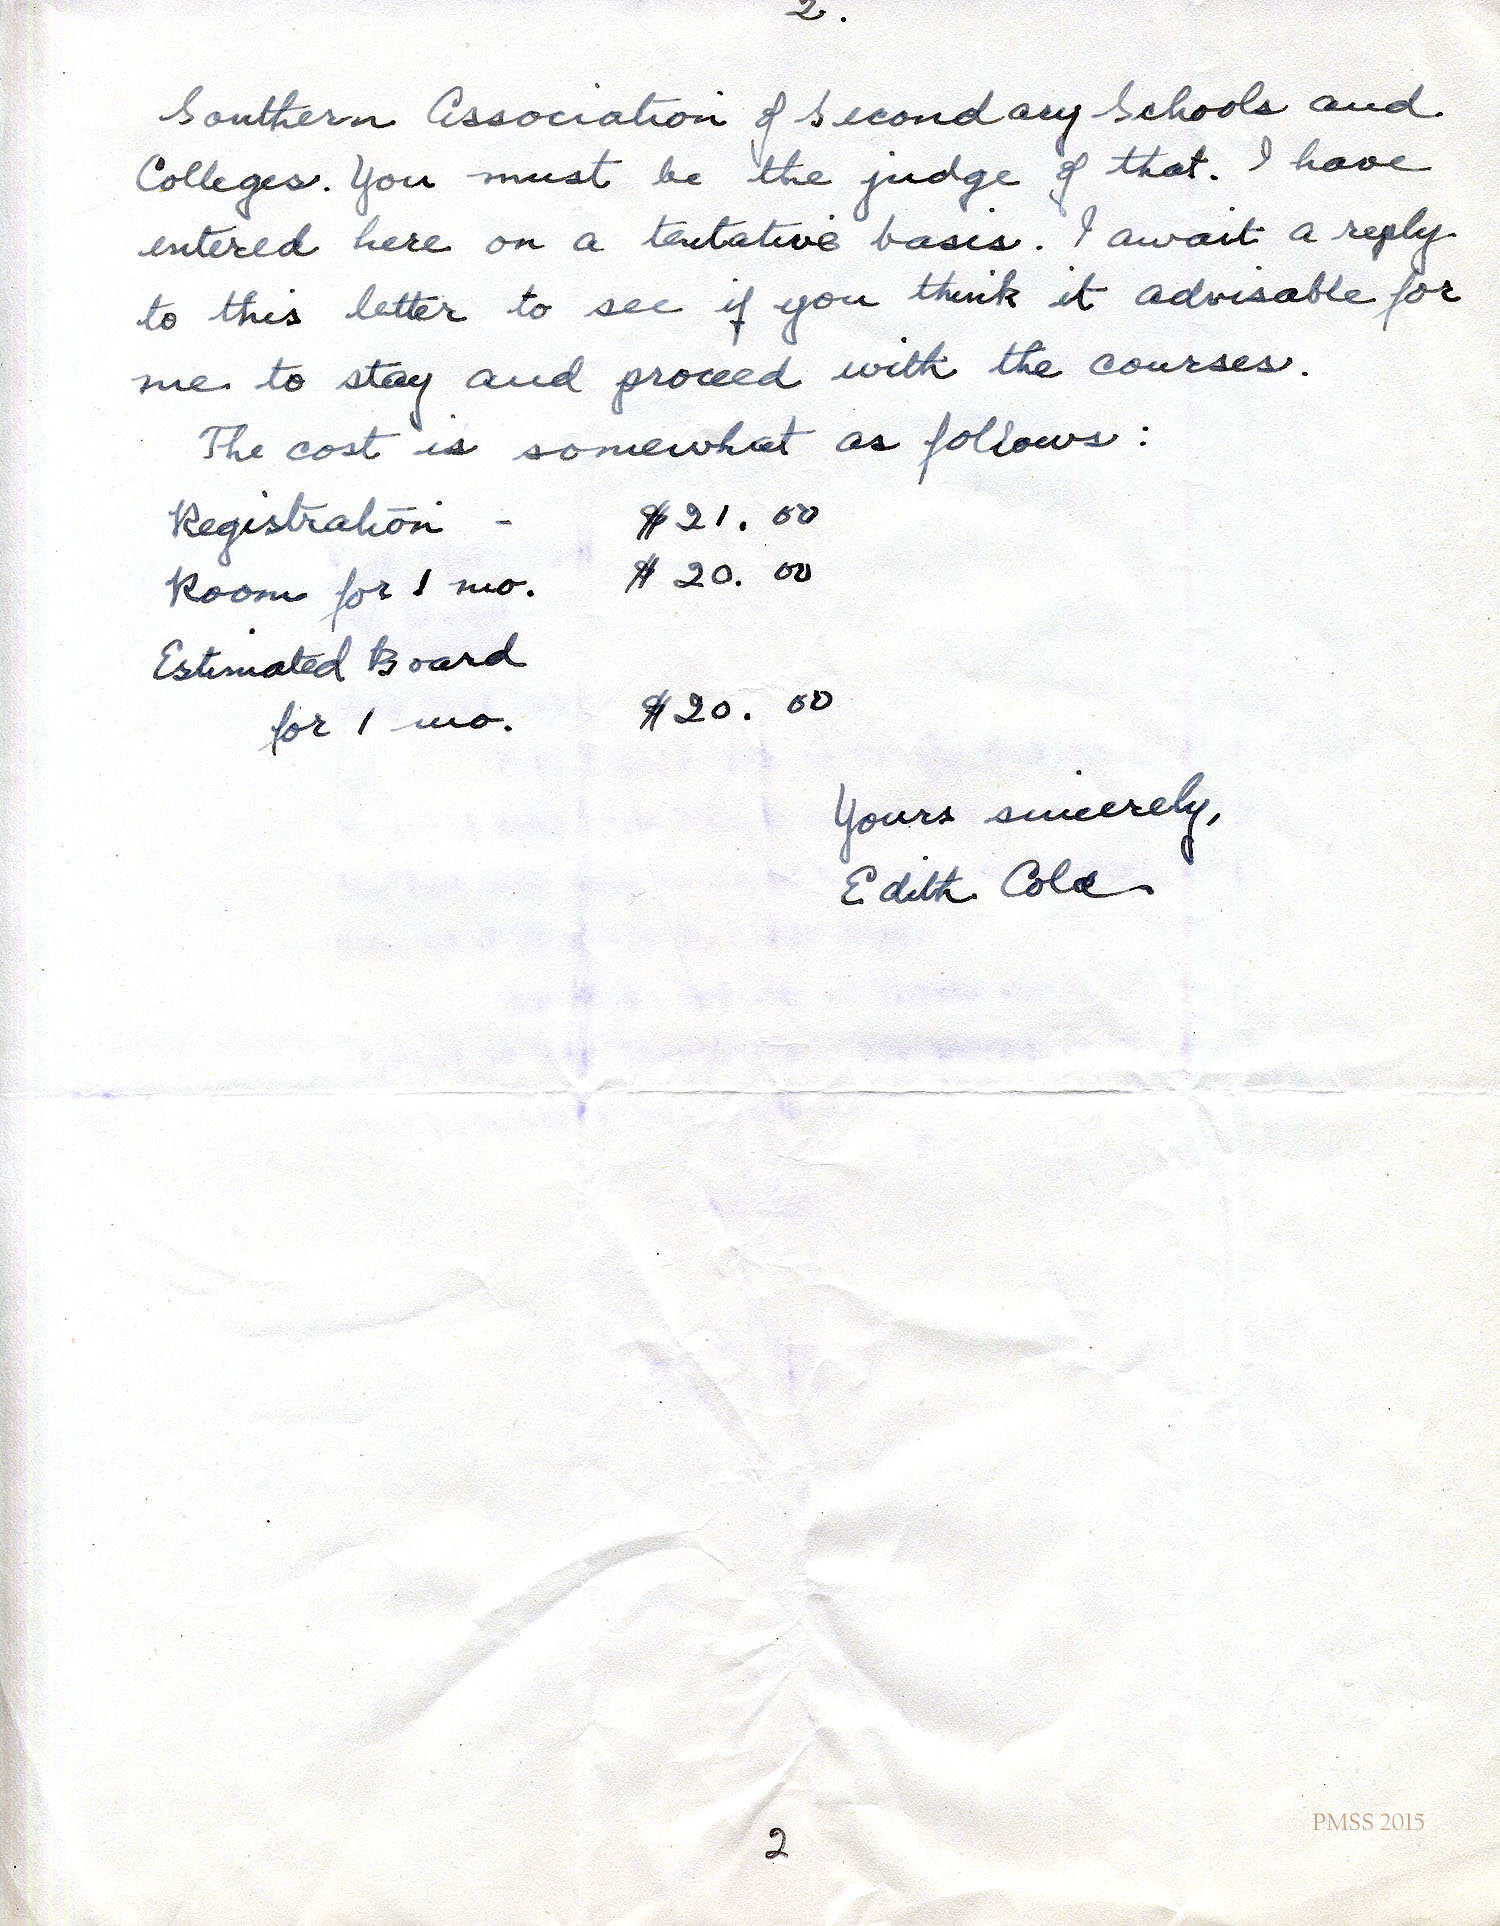 2.
Southern Association of Secondary Schools and
Colleges. You must be the judge of that. I have
entered here on a tentative basis. I await a reply
to this letter to see if you think it advisable for
me to stay and proceed with the courses.
The cost is somewhat as follows:
Registration - $21.00
Room for 1 mo. $20.00
Estimated Board
for 1 mo. $20.00
Yours sincerely,
Edith Cold
PMSS 2015
2